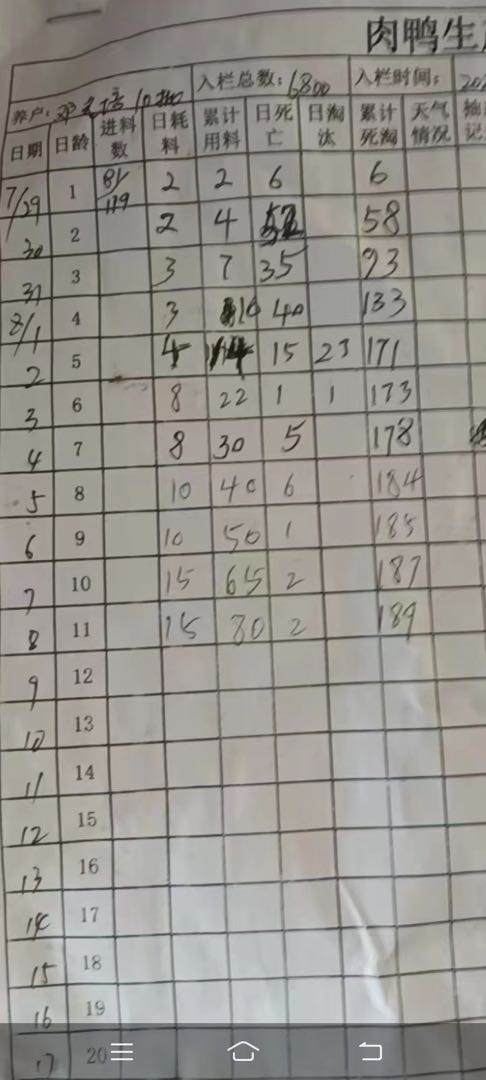 肉鸭生
养户: 10批 入栏总数: 6800 入栏时间: 202
日期 日龄 进料数 日耗料 累计用料 日死亡 日淘汰 累计死淘 天气情况
7/29 1 81/119 2 2 6 6
30 2 2 4 52 58
31 3 3 7 35 93
8/1 4 3 10 40 133
2 5 4 14 15 23 171
3 6 8 22 1 1 173
4 7 8 30 5 178
5 8 10 40 6 184
6 9 10 50 1 185
7 10 15 65 2 187
8 11 15 80 2 189
9 12
10 13
11 14
12 15
13 16
14 17
15 18
16 19
17 20